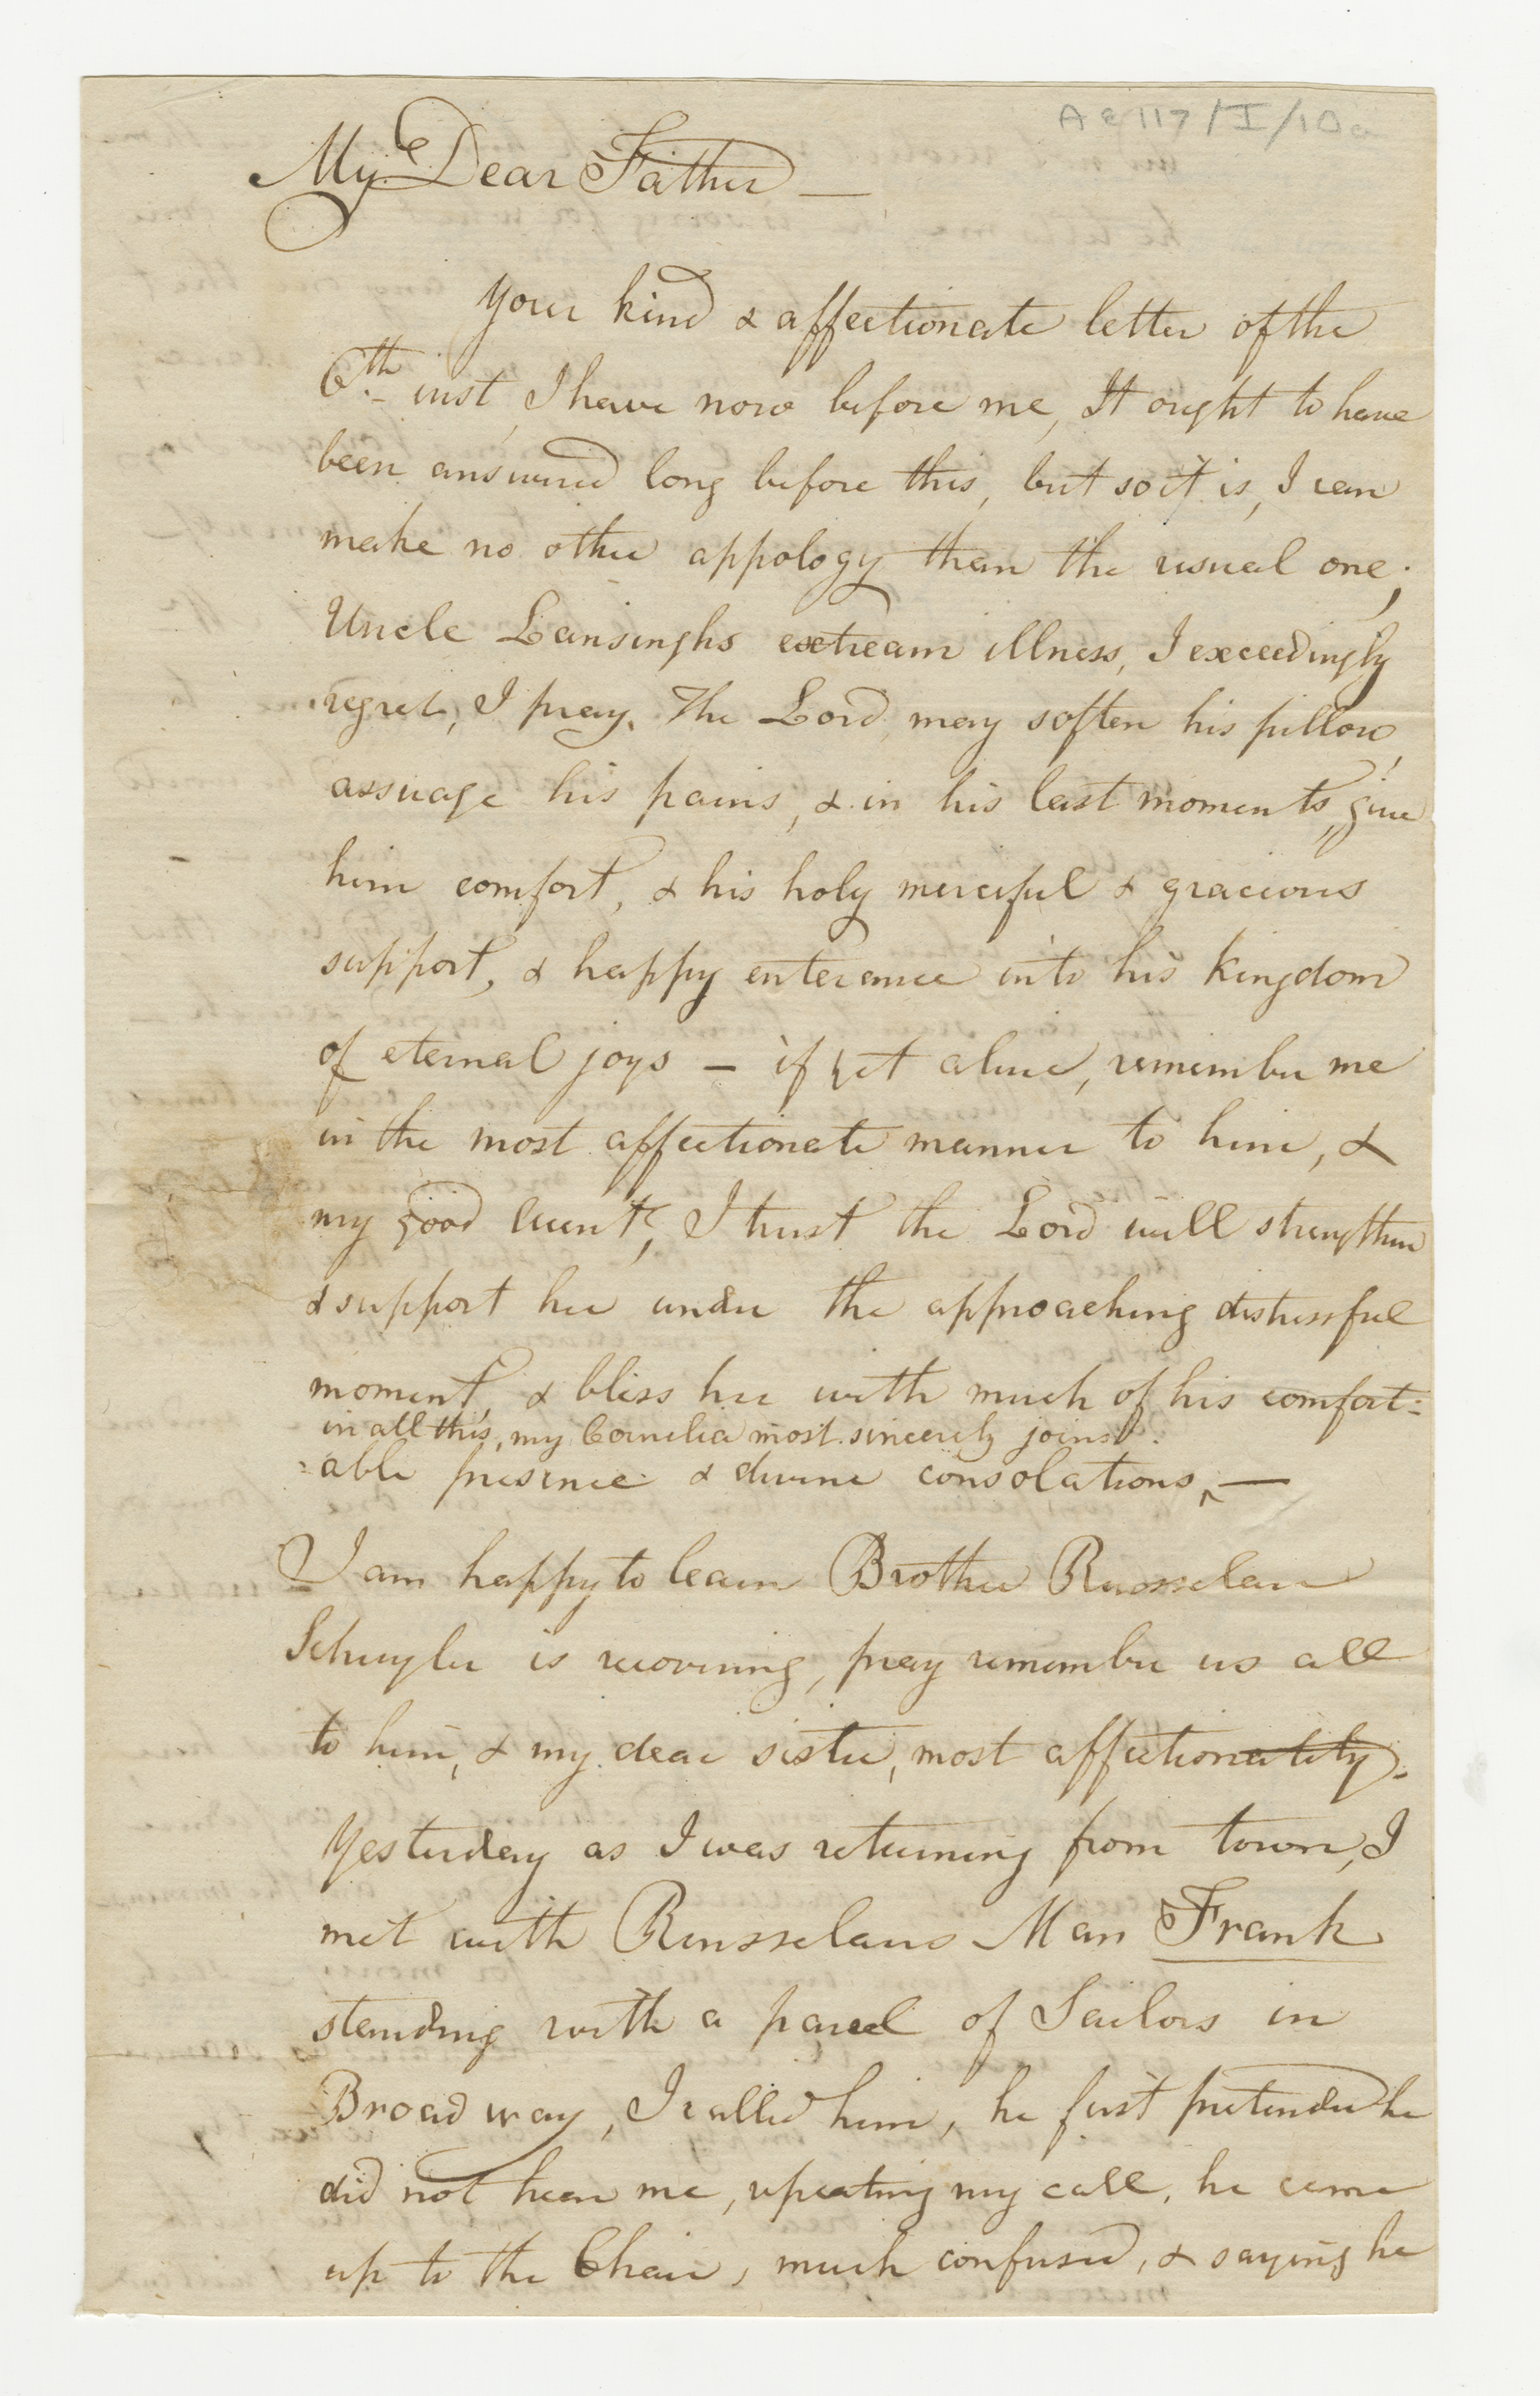 AC117/I/10a
My Dear Father —
Your kind & affectionate letter of the
6th inst, I have now before me, It ought to have
been answered long before this, but so it is, I can
make no other appology than the usual one;
Uncle Lansinghs extream illness, I exceedingly
regret, I pray, The Lord, may soften his pillow,
assuage his pains, & in his last moments, give
him comfort, & his holy merciful & gracious
support, & happy enterance into his Kingdom
of eternal joys — if yet alive, remember me
in the most affectionate manner to him, &
my good Aunt, I trust the Lord will strengthen
& support her under the approaching distressful
moment, & bless her with much of his comfort:
in all this, my Cornelia most sincerely joins.
:able presence & divine consolations, ^ —
I am happy to learn Brother Rensselaer
Schuyler is recovering, pray remember us all
to him, & my dear sister, most affectionately.
Yesterday as I was returning from town, I
met with Rensselaers Man Frank
standing with a parcel of Sailors in
Broad way, I called him, he first pretended he
did not hear me, repeating my call, he came
up to the Chair, much confused, & saying he